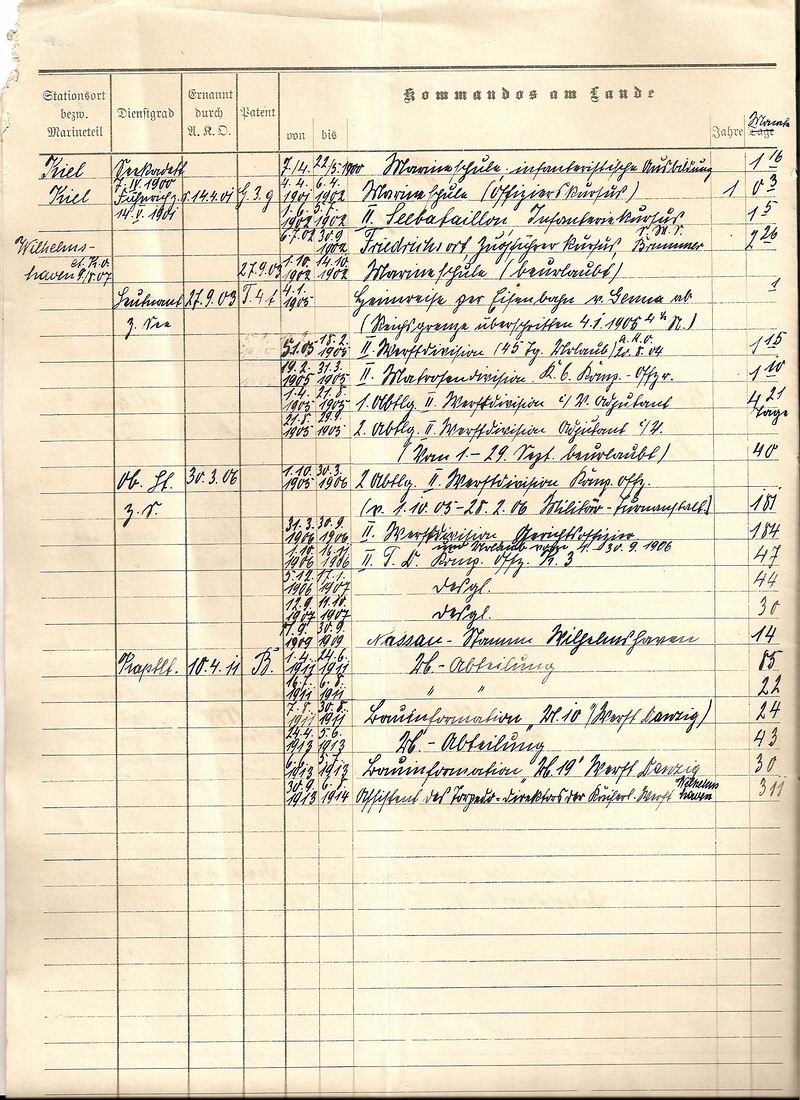 Stationsort bezw. Marineteil Dienstgrad Ernannt durch A. K. O. Patent von bis Kommandos am Lande Jahre Monate Tage
Kiel Seekadett 7./4. 22/5. 1900 Marineschule. infanteristische Ausbildung 1 16
7. IV 1900
Kiel Fähnrich z. S. 14.4.01 G. 3. g 4. 4. 1901 6. 4. 1902 Marineschule (Offizierskursus) 1 0 3
14. V. 1901 1. 6. 1902 5. 7. 1902 II. Seebataillon, Infanteriekursus 1 5
Wilhelmshaven 6.7.02 30.9. 1902 Friedrichsort, Zugführerkursus, S. M. S. Brummer 2 26
27.9.03 1.10. 1902 14.10. 1902 Marineschule (beurlaubt)
Leutnant 27.9.03 T. 4 t 4.1. 1905 Heimreise per Eisenbahn v. Genua ab 1
z. See (Reichsgrenze überschritten 4.1.1905 4 N.)
5.1.05 18.2. 1905 II. Werftdivision (45 Tg. Urlaub) A.K.O. 20.8.04 1 15
19.2. 1905 31.3. 1905 II. Matrosendivision. K. 6. Komp.-Offzr. 1 10
1.4. 1905 21.8. 1905 1. Abtlg. II. Werftdivision i/V. Adjutant 4 21
21.8. 1905 29.9. 1905 2. Abtlg. II. Werftdivision Adjutant i/V. Tage
(Vom 1.-29. Sept. beurlaubt) 40
Ob. Lt. 30.3.06 1.10. 1905 30.3. 1906 2 Abtlg. II. Werftdivision Komp. Offz.
z. S. (v. 1.10.05-28.2.06 Militär-Turnanstalt) 181
31.3. 1906 30.9. 1906 II. Werftdivision Gerichtsoffizier 184
und Urlaub vom 4. 30. 9. 1906
1.10. 1906 16.11. 1906 II. T. D. Komp. Offz. K. 3 47
5.12. 1906 17.1. 1907 desgl. 44
12.9. 1907 11.10. 1907 desgl. 30
17.9. 1909 30.9. 1909 Nassau-Stamm Wilhelmshaven 14
Kaptlt. 10.4.11 B. 1.4. 1911 24.6. 1911 Ub.-Abteilung 85
16.7. 1911 6.8. 1911 " " 22
7.8. 1911 30.8. 1911 Bauinformation "U. 10" (Werft Danzig) 24
24.4. 1913 5.6. 1913 Ub.-Abteilung 43
6.6. 1913 5.7. 1913 Bauinformation "Ub 19" Werft Danzig 30
30.9. 1913 6.8. 1914 Assistent des Torpedo-Direktors der Kaiserl. Werft Wilhelmshaven 311